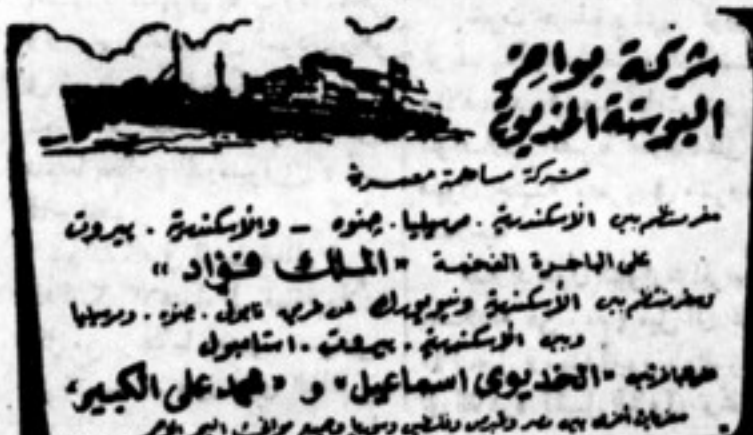 شركة بواخر
البوستة الخديوية
شركة مساهمة مصرية
سفر منتظم بين الأسكندرية . مرسيليا . جنوه – والأسكندرية . بيروت
على الباخرة الفخمة «الملك فؤاد»
وسفر منتظم بين الأسكندرية ونيويورك عن طريق نابولى . جنوه . ومرسيليا
وبين الأسكندرية . بيروت . استامبول
«الخديوى اسماعيل» و «محمد على الكبير»
بين مصر وقبرص وفلسطين